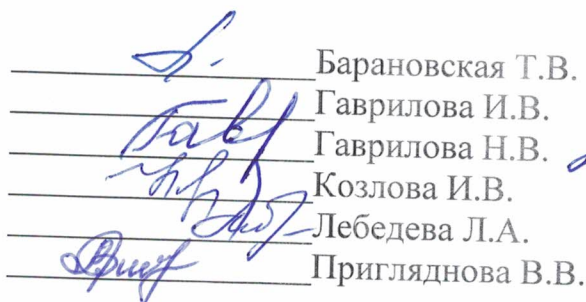 Барановская Т.В.
Гаврилова И.В.
Гаврилова Н.В.
Козлова И.В.
Лебедева Л.А.
Пригляднова В.В.